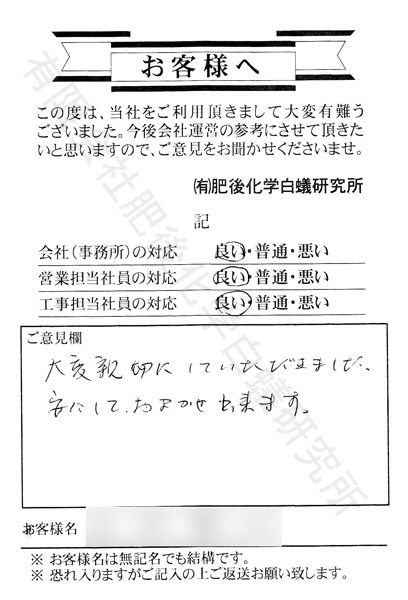 お客様へ
この度は、当社をご利用頂きまして大変有難う
ございました。今後会社運営の参考にさせて頂きた
いと思いますので、ご意見をお聞かせくださいませ。
㈲肥後化学白蟻研究所
記
会社(事務所)の対応 良い・普通・悪い
営業担当社員の対応 良い・普通・悪い
工事担当社員の対応 良い・普通・悪い
ご意見欄
大変親切にしていただきました、
安心して、おまかせ出来ます。
お客様名
※ お客様名は無記名でも結構です。
※ 恐れ入りますがご記入の上ご返送お願い致します。
有限会社肥後化学白蟻研究所